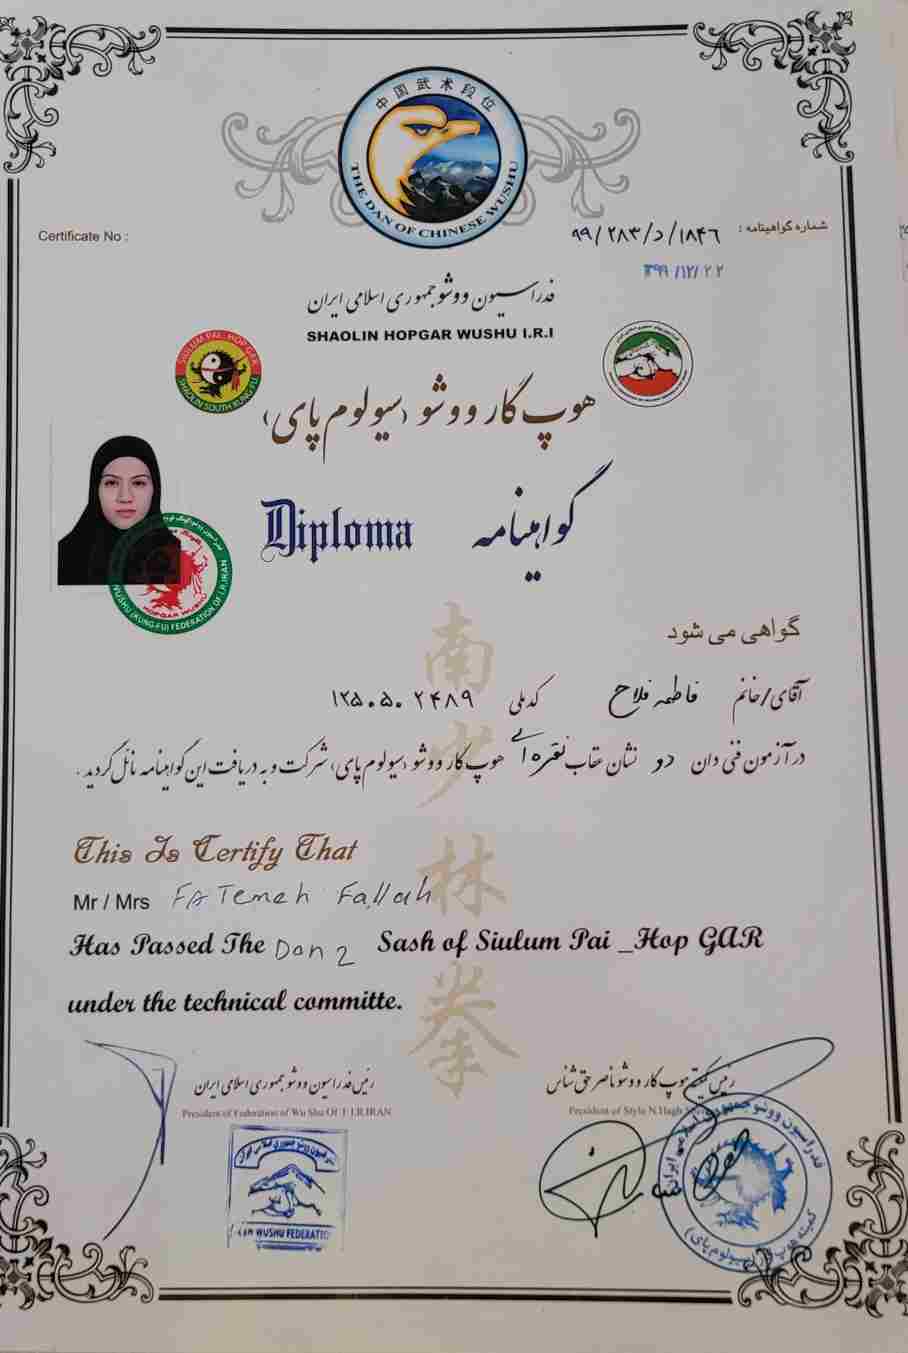 中国武术段位
THE DAN OF CHINESE WUSHU
Certificate No :
شماره گواهینامه : ۹۹/۲۸۳/د/۱۸۴۶
۱۳۹۹/۱۲/۲۲
فدراسیون ووشو جمهوری اسلامی ایران
SHAOLIN HOPGAR WUSHU I.R.I
SIULUM PAI HOP GAR
SHAOLIN SOUTH KUNG FU
هوپ گار ووشو (سیولوم پای)
Diploma گواهینامه
HOPGAR WUSHU
WUSHU (KUNG-FU) FEDERATION OF I.R.IRAN
南少林拳
گواهی می شود
آقای/خانم فاطمه فلاح کد ملی ۱۲۵۰۵۰۲۴۸۹
در آزمون فنی دان دو نشان عقاب نقره ای هوپ گار ووشو (سیولوم پای) شرکت و به دریافت این گواهینامه نائل گردید .
This Is Certify That
Mr / Mrs Fatemeh Fallah
Has Passed The Dan 2 Sash of Siulum Pai _Hop GAR
under the technical committe.
رئیس فدراسیون ووشو جمهوری اسلامی ایران
President of Federation of Wu Shu Of I.R.IRAN
رئیس کمیته هوپ گار ووشو ناصر حق شناس
President of Style N.Hagh
WUSHU FEDERATION
فدراسیون ووشو جمهوری اسلامی ایران
کمیته هوپ گار (سیولوم پای)